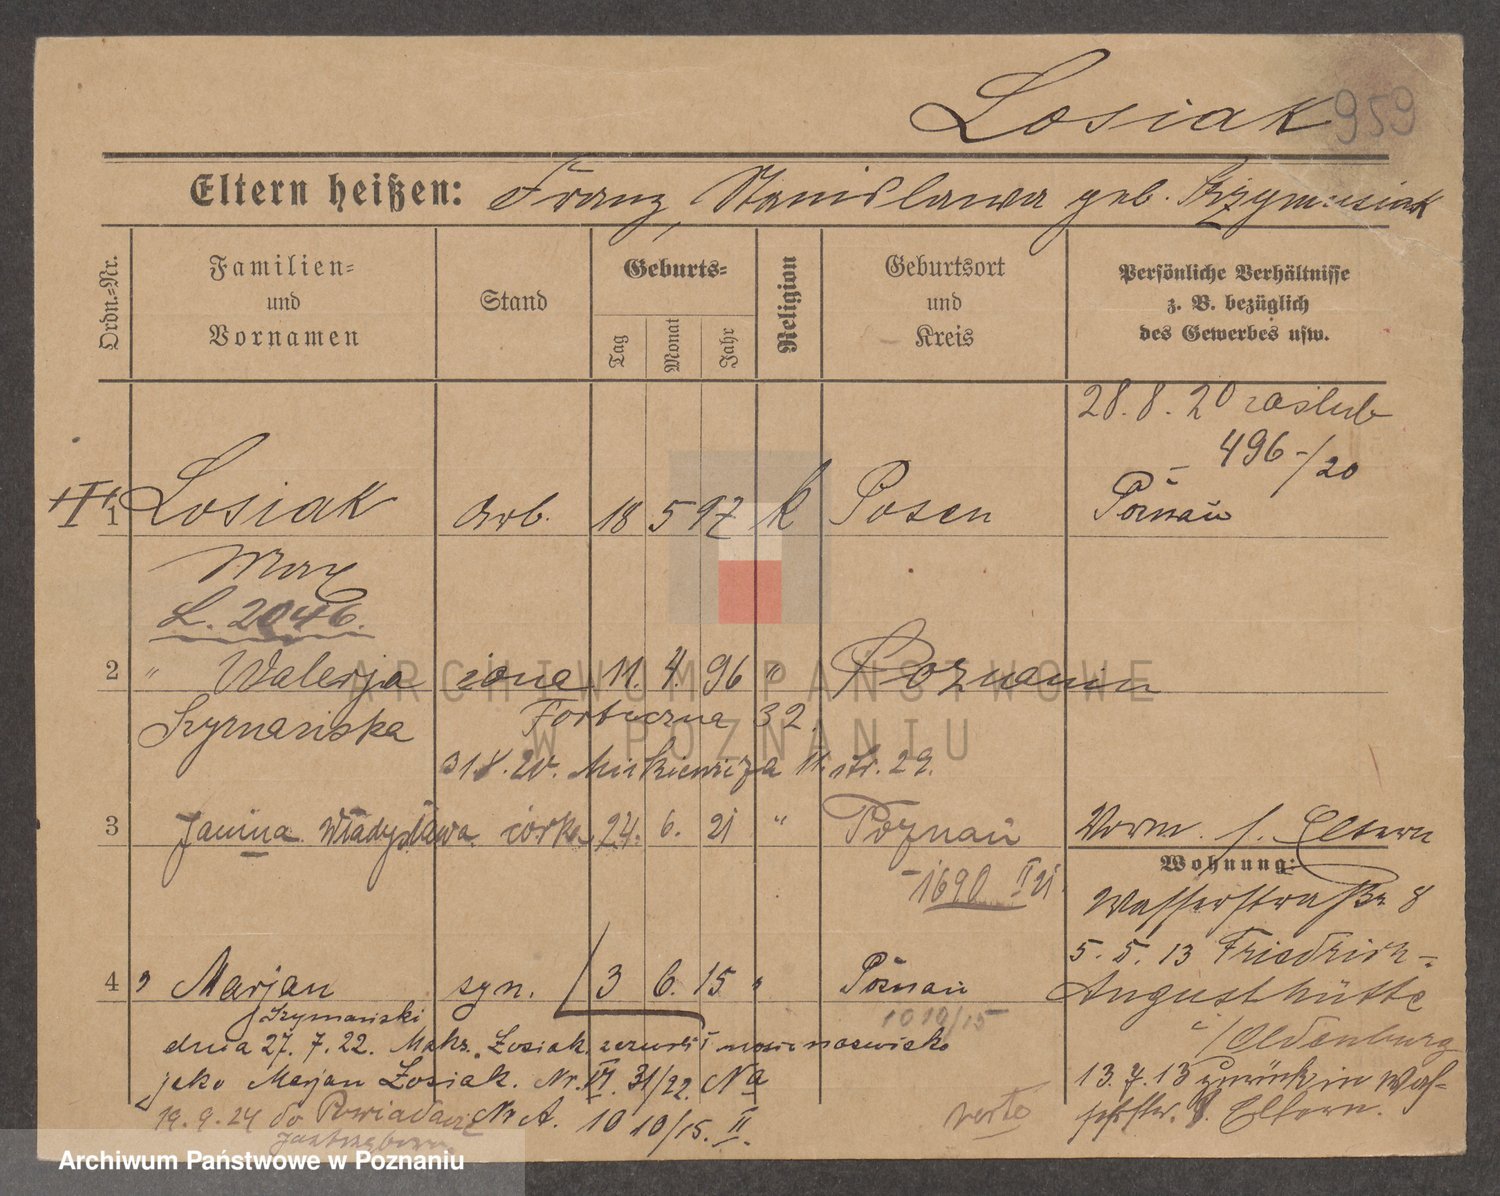 Losiak 959
Eltern heißen: Franz, Stanislawa geb. Szymusiak
Ordn.-Nr.
Familien- und Vornamen
Stand
Geburts-
Tag
Monat
Jahr
Religion
Geburtsort und Kreis
Persönliche Verhältnisse z. B. bezüglich des Gewerbes usw.
28.8.20 zaslub
496-/20
Poznań
1 Losiak Arb. 18 5 97 k Posen
Max
L. 2046.
2 " Walerja żona 11. 4. 96 " Poznaniu
Szymańska Forteczna 32.
Mickiewicza 29.
3 Janina Władysława córka 24. 6. 21 " Poznań
1690 II 21
Vorm. f. Eltern
Wohnung:
Wasserstraße 8
5.5.13 Friedrich-
Augusthütte
i/Oldenburg
13.7.13 zurück in Was-
Eltern.
4 " Marjan syn. 3 6. 15 " Poznań
Szymański 1010/15
dnia 27.7.22. Maks. Łosiak nazwisko
jako Marjan Łosiak. Nr. VI. 31/22. Na
19.9.24 do Nr A. 10 10/15. II.
verte
ARCHIWUM PAŃSTWOWE
W POZNANIU
Archiwum Państwowe w Poznaniu